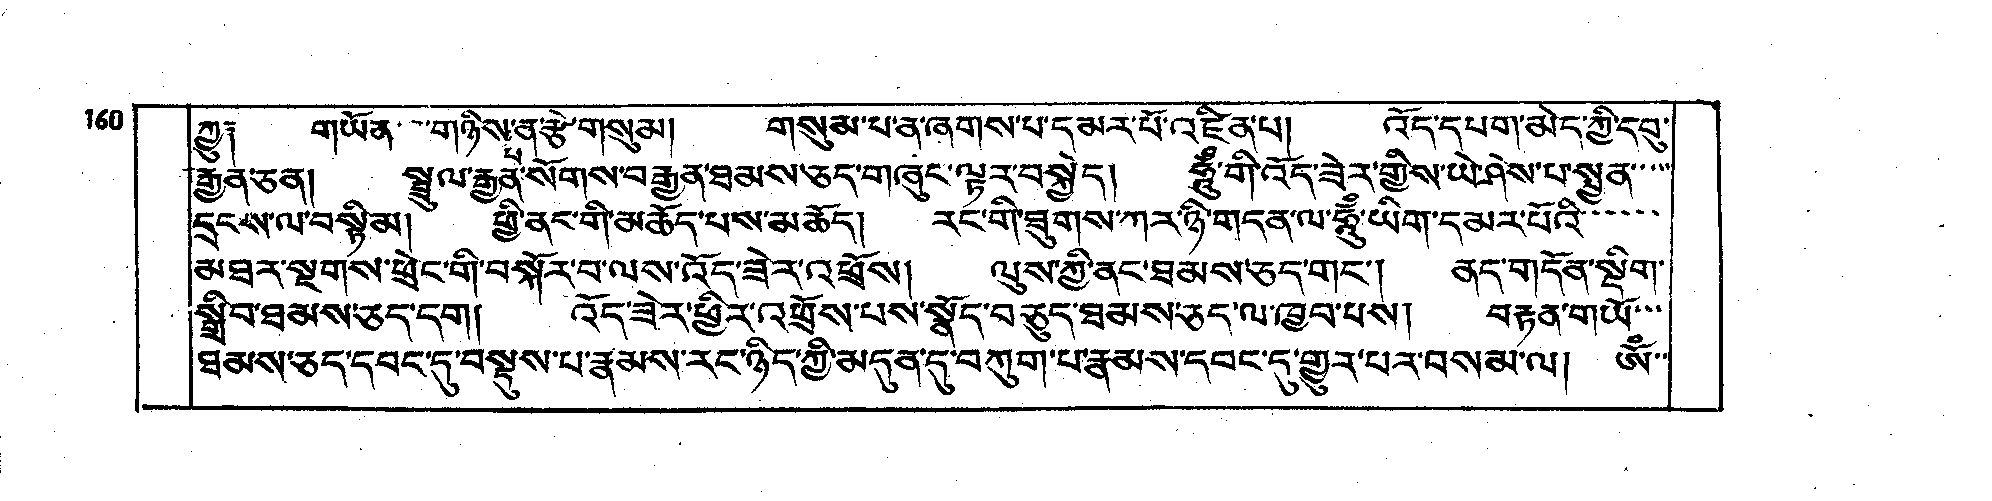 160
ཀྱུ༔ གཡོན་་་གཉིས་ན་རྩེ་གསུམ། གསུམ་པ་ན་ཞགས་པ་དམར་པོ་འཛིན་པ། འོད་དཔག་མེད་ཀྱི་དབུ་
རྒྱན་ཅན། སྦྲུལ་རྒྱན་སོགས་བརྒྱན་ཐམས་ཅད་གཞུང་ལྟར་བསྐྱེད། ཧྲཱིཿ་གི་འོད་ཟེར་གྱིས་ཡེ་ཤེས་པ་སྤྱན་་་་
དྲངས་ལ་བསྟིམ། ཕྱི་ནང་གི་མཆོད་པས་མཆོད། རང་གི་ཐུགས་ཀར་ཉི་གདན་ལ་ཧཱུྃ་ཡིག་དམར་པོའི་་་་་་
མཐར་སྔགས་ཕྲེང་གི་བསྐོར་བ་ལས་འོད་ཟེར་འཕྲོས། ལུས་ཀྱི་ནང་ཐམས་ཅད་གང་། ནད་གདོན་སྡིག་
སྒྲིབ་ཐམས་ཅད་དག། འོད་ཟེར་ཕྱིར་འཕྲོས་པས་སྣོད་བཅུད་ཐམས་ཅད་ལ་ཁྱབ་པས། བརྟན་གཡོ་་་
ཐམས་ཅད་དབང་དུ་བསྡུས་པ་རྣམས་རང་ཉིད་ཀྱི་མདུན་དུ་བཀུག་པ་རྣམས་དབང་དུ་གྱུར་པར་བསམ་ལ། ཨོཾ་་